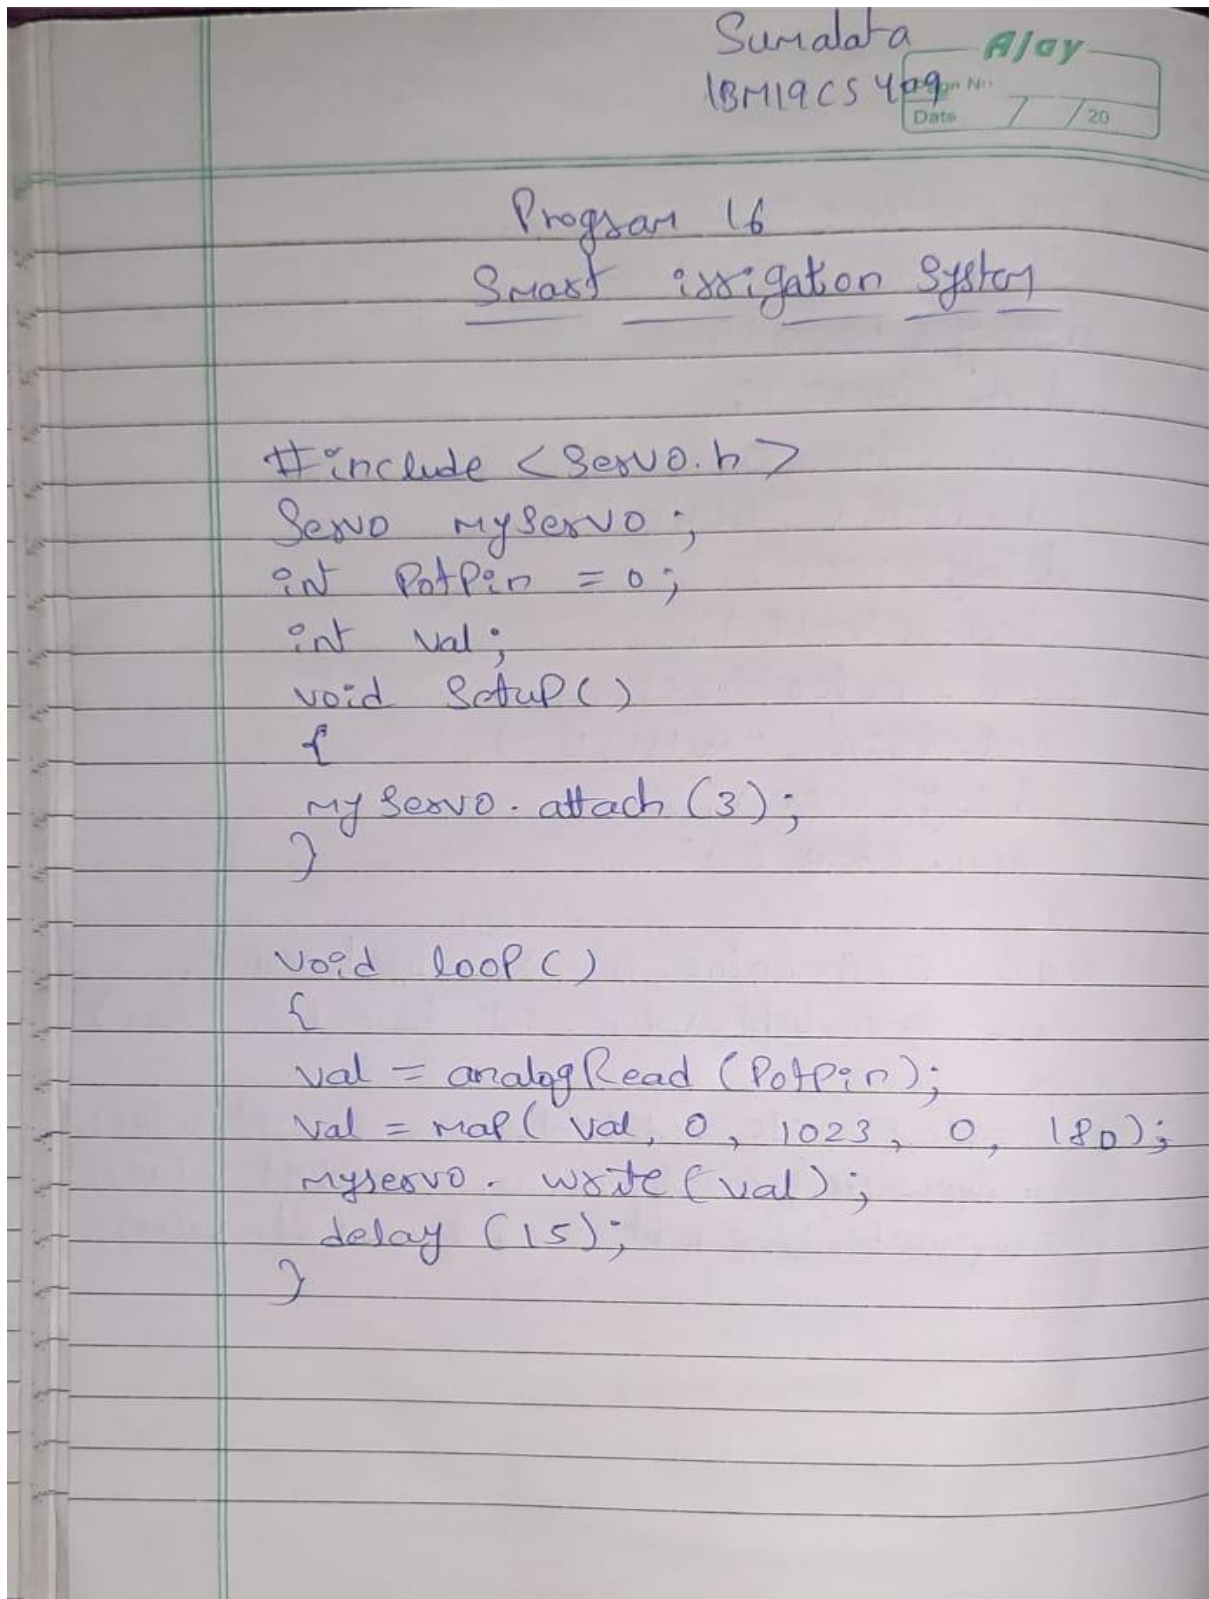 Sumalata
Ajay
1BM19CS409
Date / /20
Program 16
Smart irrigation System
#include <Servo.h>
Servo myservo;
int PotPin = 0;
int val;
void Setup()
{
myservo.attach(3);
}
void loop()
{
val = analogRead(PotPin);
val = map(val, 0, 1023, 0, 180);
myservo.write(val);
delay(15);
}